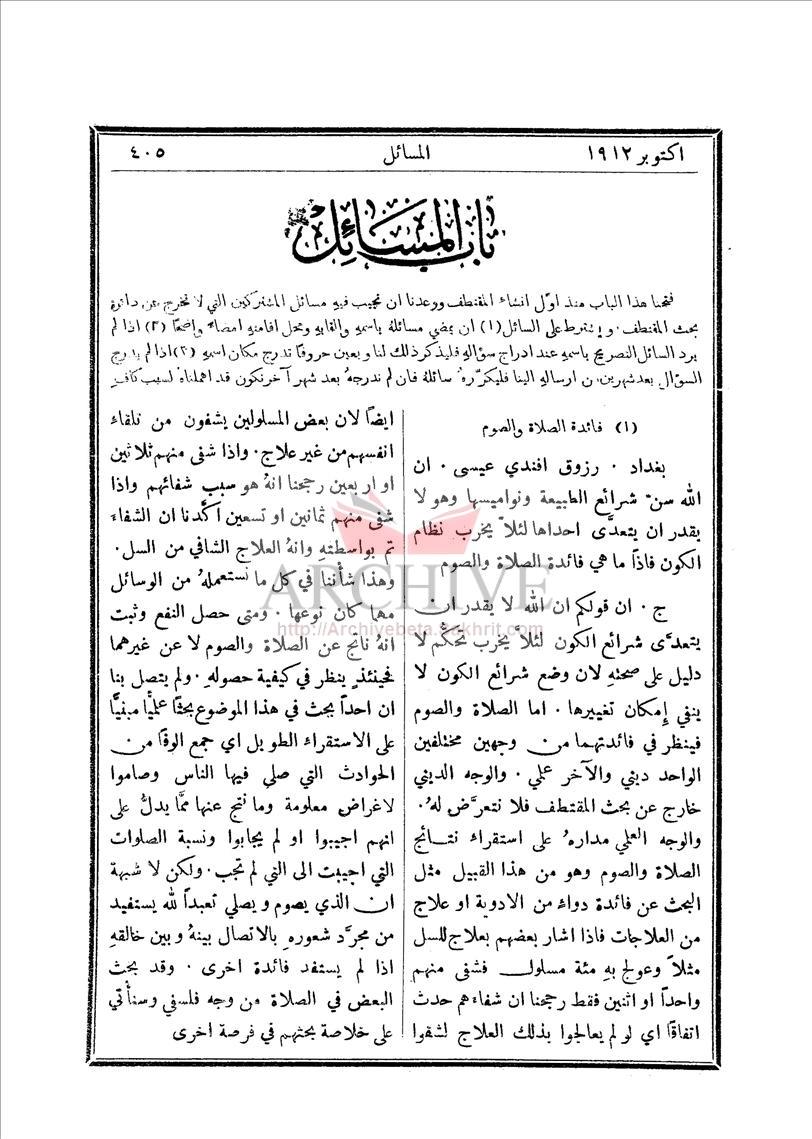 اكتوبر ١٩١٢
المسائل
٤٠٥
باب المسائل
فتحنا هذا الباب منذ اوّل انشاء المقتطف ووعدنا ان نجيب فيهِ مسائل المشتركين التي لا تخرج عن دائرة
بحث المقتطف . ويشترط على السائل (١) ان يمضي مسائلهُ باسمهِ والقابهِ ومحل اقامتهِ امضاءً واضحًا (٢) اذا لم
يرد السائل التصريح باسمهِ عند ادراج سؤالهِ فليذكر ذلك لنا ويعين حروفًا تدرج مكان اسمهِ (٣) اذا لم يدرج
السؤال بعد شهرين من ارسالهِ الينا فليكرّرهُ سائلهُ فان لم ندرجهُ بعد شهر آخر نكون قد اهملناهُ لسبب كافٍ
(١) فائدة الصلاة والصوم
بغداد . رزوق افندي عيسى . ان
الله سنّ شرائع الطبيعة ونواميسها وهو لا
يقدر ان يتعدَّى احداها لئلاَّ يخرب نظام
الكون فاذًا ما هي فائدة الصلاة والصوم
ج . ان قولكم ان الله لا يقدر ان
يتعدَّى شرائع الكون لئلاَّ يخرب تحكُّم لا
دليل على صحتهِ لان وضع شرائع الكون لا
ينفي إمكان تغييرها . اما الصلاة والصوم
فينظر في فائدتهما من وجهين مختلفين
الواحد ديني والآخر علمي . والوجه الديني
خارج عن بحث المقتطف فلا نتعرَّض لهُ .
والوجه العلمي مدارهُ على استقراء نتائج
الصلاة والصوم وهو من هذا القبيل مثل
البحث عن فائدة دواء من الادوية او علاج
من العلاجات فاذا اشار بعضهم بعلاج للسل
مثلاً وعولج بهِ مئة مسلول فشفي منهم
واحدًا او اثنين فقط رجحنا ان شفاءهم حدث
اتفاقًا اي لو لم يعالجوا بذلك العلاج لشفوا
ايضًا لان بعض المسلولين يشفون من تلقاء
انفسهم من غير علاج . واذا شفى منهم ثلاثين
او اربعين رجحنا انهُ هو سبب شفائهم واذا
شفى منهم ثمانين او تسعين اكَّدنا ان الشفاء
تم بواسطتهِ وانهُ العلاج الشافي من السل .
وهذا شأننا في كل ما نستعملهُ من الوسائل
مهما كان نوعها . ومتى حصل النفع وثبت
انهُ ناتج عن الصلاة والصوم لا عن غيرهما
فحينئذٍ ينظر في كيفية حصولهِ . ولم يتصل بنا
ان احدًا بحث في هذا الموضوع بحثًا عمليًّا مبنيًّا
على الاستقراء الطويل اي جمع الوفًا من
الحوادث التي صلى فيها الناس وصاموا
لاغراض معلومة وما نتج عنها ممَّا يدلُّ على
انهم اجيبوا او لم يجابوا ونسبة الصلوات
التي اجيبت الى التي لم تجب . ولكن لا شبهة
ان الذي يصوم ويصلي تعبدًا لله يستفيد
من مجرَّد شعورهِ بالاتصال بينهُ وبين خالقهِ
اذا لم يستفد فائدة اخرى . وقد بحث
البعض في الصلاة من وجه فلسفي وسنأتي
على خلاصة بحثهم في فرصة اخرى
ARCHIVE
http://Archivebeta.Sakhrit.com